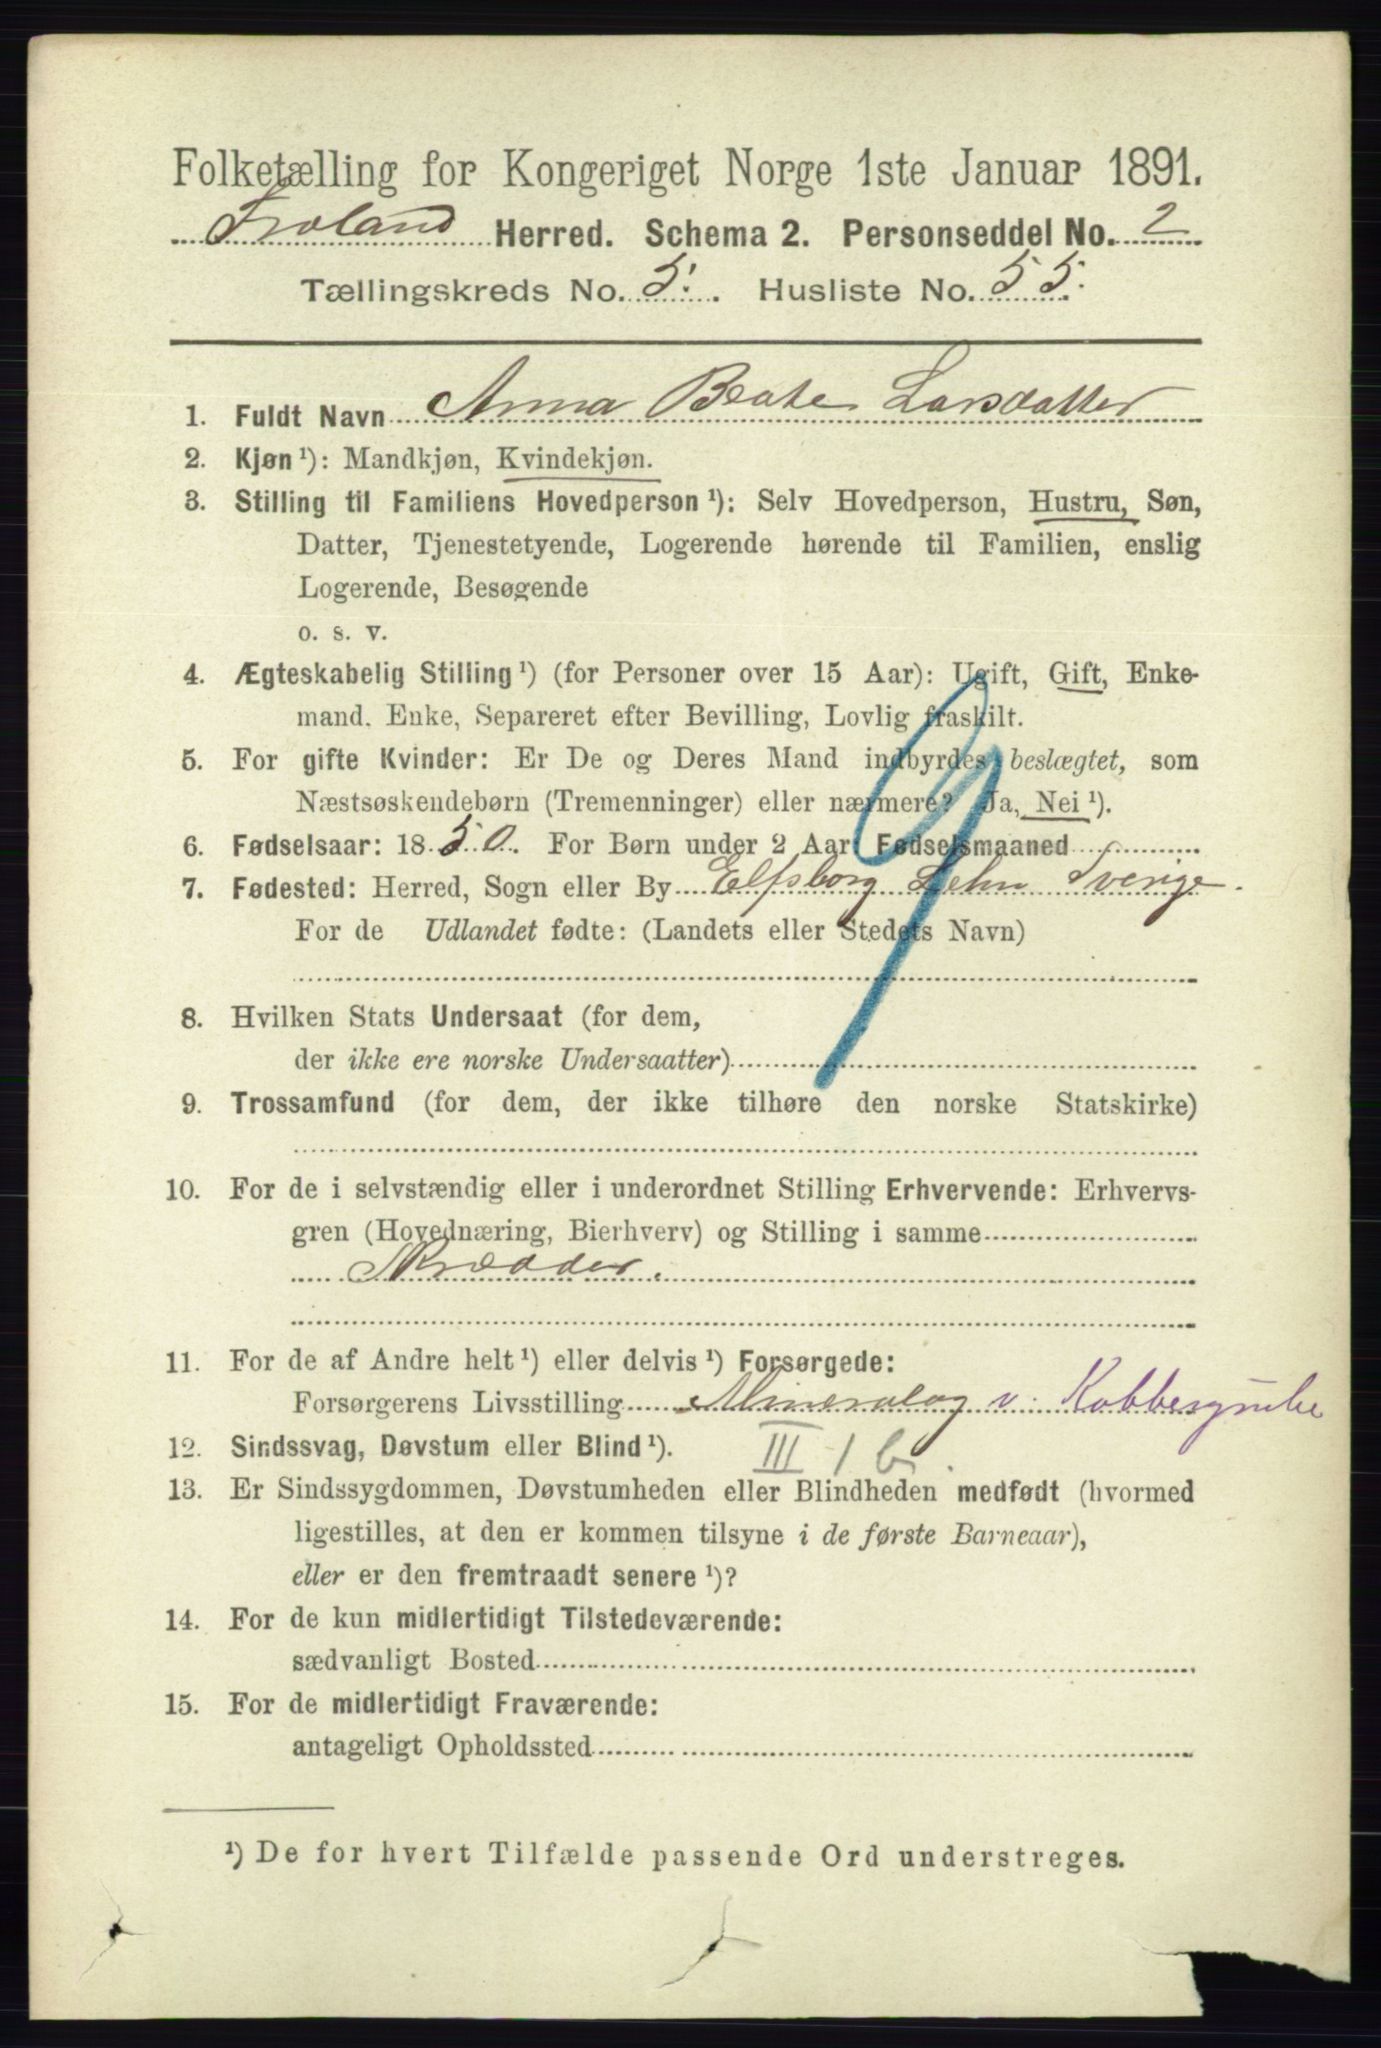 Folketælling for Kongeriget Norge 1ste Januar 1891.
Froland Herred. Schema 2. Personseddel No. 2
Tællingskreds No. 5. Husliste No. 55.
1. Fuldt Navn Anna Beate Larsdatter
2. Kjøn ¹): Mandkjøn, Kvindekjøn.
3. Stilling til Familiens Hovedperson ¹): Selv Hovedperson, Hustru, Søn,
Datter, Tjenestetyende, Logerende hørende til Familien, enslig
Logerende, Besøgende
o. s. v.
4. Ægteskabelig Stilling ¹) (for Personer over 15 Aar): Ugift, Gift, Enke-
mand. Enke, Separeret efter Bevilling, Lovlig fraskilt.
5. For gifte Kvinder: Er De og Deres Mand indbyrdes beslægtet, som
Næstsøskendebørn (Tremenninger) eller nærmere? Ja, Nei ¹).
6. Fødselsaar: 1850. For Børn under 2 Aar: Fødselsmaaned
7. Fødested: Herred, Sogn eller By Elfsborg Lehn Sverige.
For de Udlandet fødte: (Landets eller Stedets Navn)
9
8. Hvilken Stats Undersaat (for dem,
der ikke ere norske Undersaatter)
9. Trossamfund (for dem, der ikke tilhøre den norske Statskirke)
10. For de i selvstændig eller i underordnet Stilling Erhvervende: Erhvervs-
gren (Hovednæring, Bierhverv) og Stilling i samme
Skrædder.
11. For de af Andre helt ¹) eller delvis ¹) Forsørgede:
Forsørgerens Livsstilling Mineralog v. Kobbergrube
12. Sindssvag, Døvstum eller Blind ¹). III 1 b.
13. Er Sindssygdommen, Døvstumheden eller Blindheden medfødt (hvormed
ligestilles, at den er kommen tilsyne i de første Barneaar),
eller er den fremtraadt senere ¹)?
14. For de kun midlertidigt Tilstedeværende:
sædvanligt Bosted
15. For de midlertidigt Fraværende:
antageligt Opholdssted
¹) De for hvert Tilfælde passende Ord understreges.